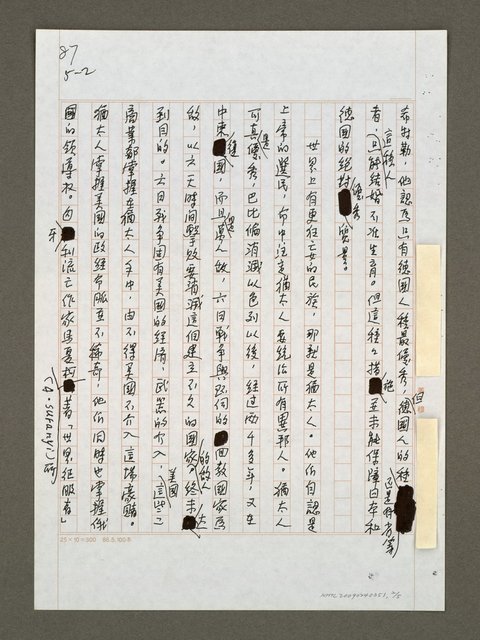 87
5-2
希特勒,他認為只有德國人種最優秀,但德國人的種
者,這種人只解結婚不准生育。但這種種措施並未能保障日本和
德國的絕對優秀質量。
世界上有更狂妄的民族,那就是猶太人。他們自認是
上帝的選民,命中注定猶太人要統治所有異邦人。猶太人
可真是優秀,巴比倫消滅以色列以後,經過兩千多年,又在
中東建國,而且是萬人敵,六日戰爭與阿伯的回教國家為
敵,以六天時間擊敗要消滅這個建立不久的國家的敵人,終未達
到目的。六日戰爭固有美國的經濟,武器的介入,美國這些工
商業都掌握在猶太人手中,由不得美國不介入這場豪賭。
猶太人掌握美國的政經命脈並不稀奇,他們同時也掌握俄
國的領導权。匈牙利流亡作家馬夏柯著「世界征服者」
25×10=300
NMTL20090240051, 2/5